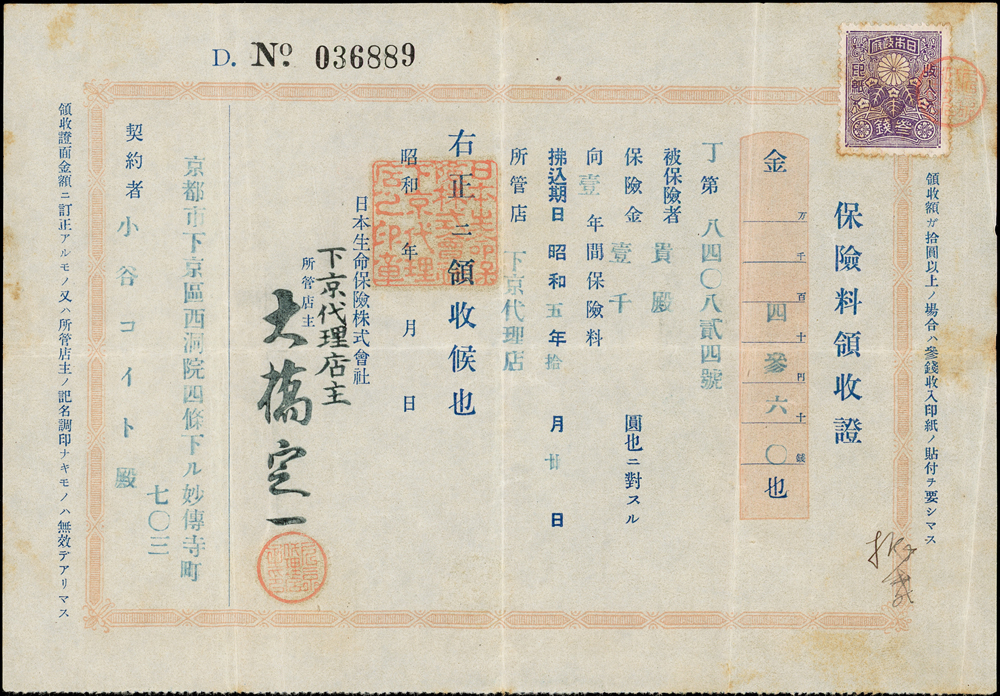 D. № 036889
大日本帝國政府
收入
印紙
參錢
領收額ガ拾圓以上ノ場合ハ參錢收入印紙ノ貼付ヲ要シマス
保險料領收證
金 万 千 百 四 十 參 円 六 十 〇 錢 也
丁第八四〇八貳四號
被保險者 貴殿
保險金 壹千 圓也ニ對スル
向壹年間保險料
拂込期日昭和五年拾月廿日
所管店 下京代理店
右正ニ領收候也
昭和 年 月 日
日本生命保險株式會社
下京代理店主
所管店主
大橋定一
京都市下京區西洞院四條下ル妙傳寺町
七〇三
契約者 小谷コイト殿
領收證面金額ニ訂正アルモノ又ハ所管店主ノ記名調印ナキモノハ無效デアリマス
日本生命保
險株式會社
下京代理
店之印章